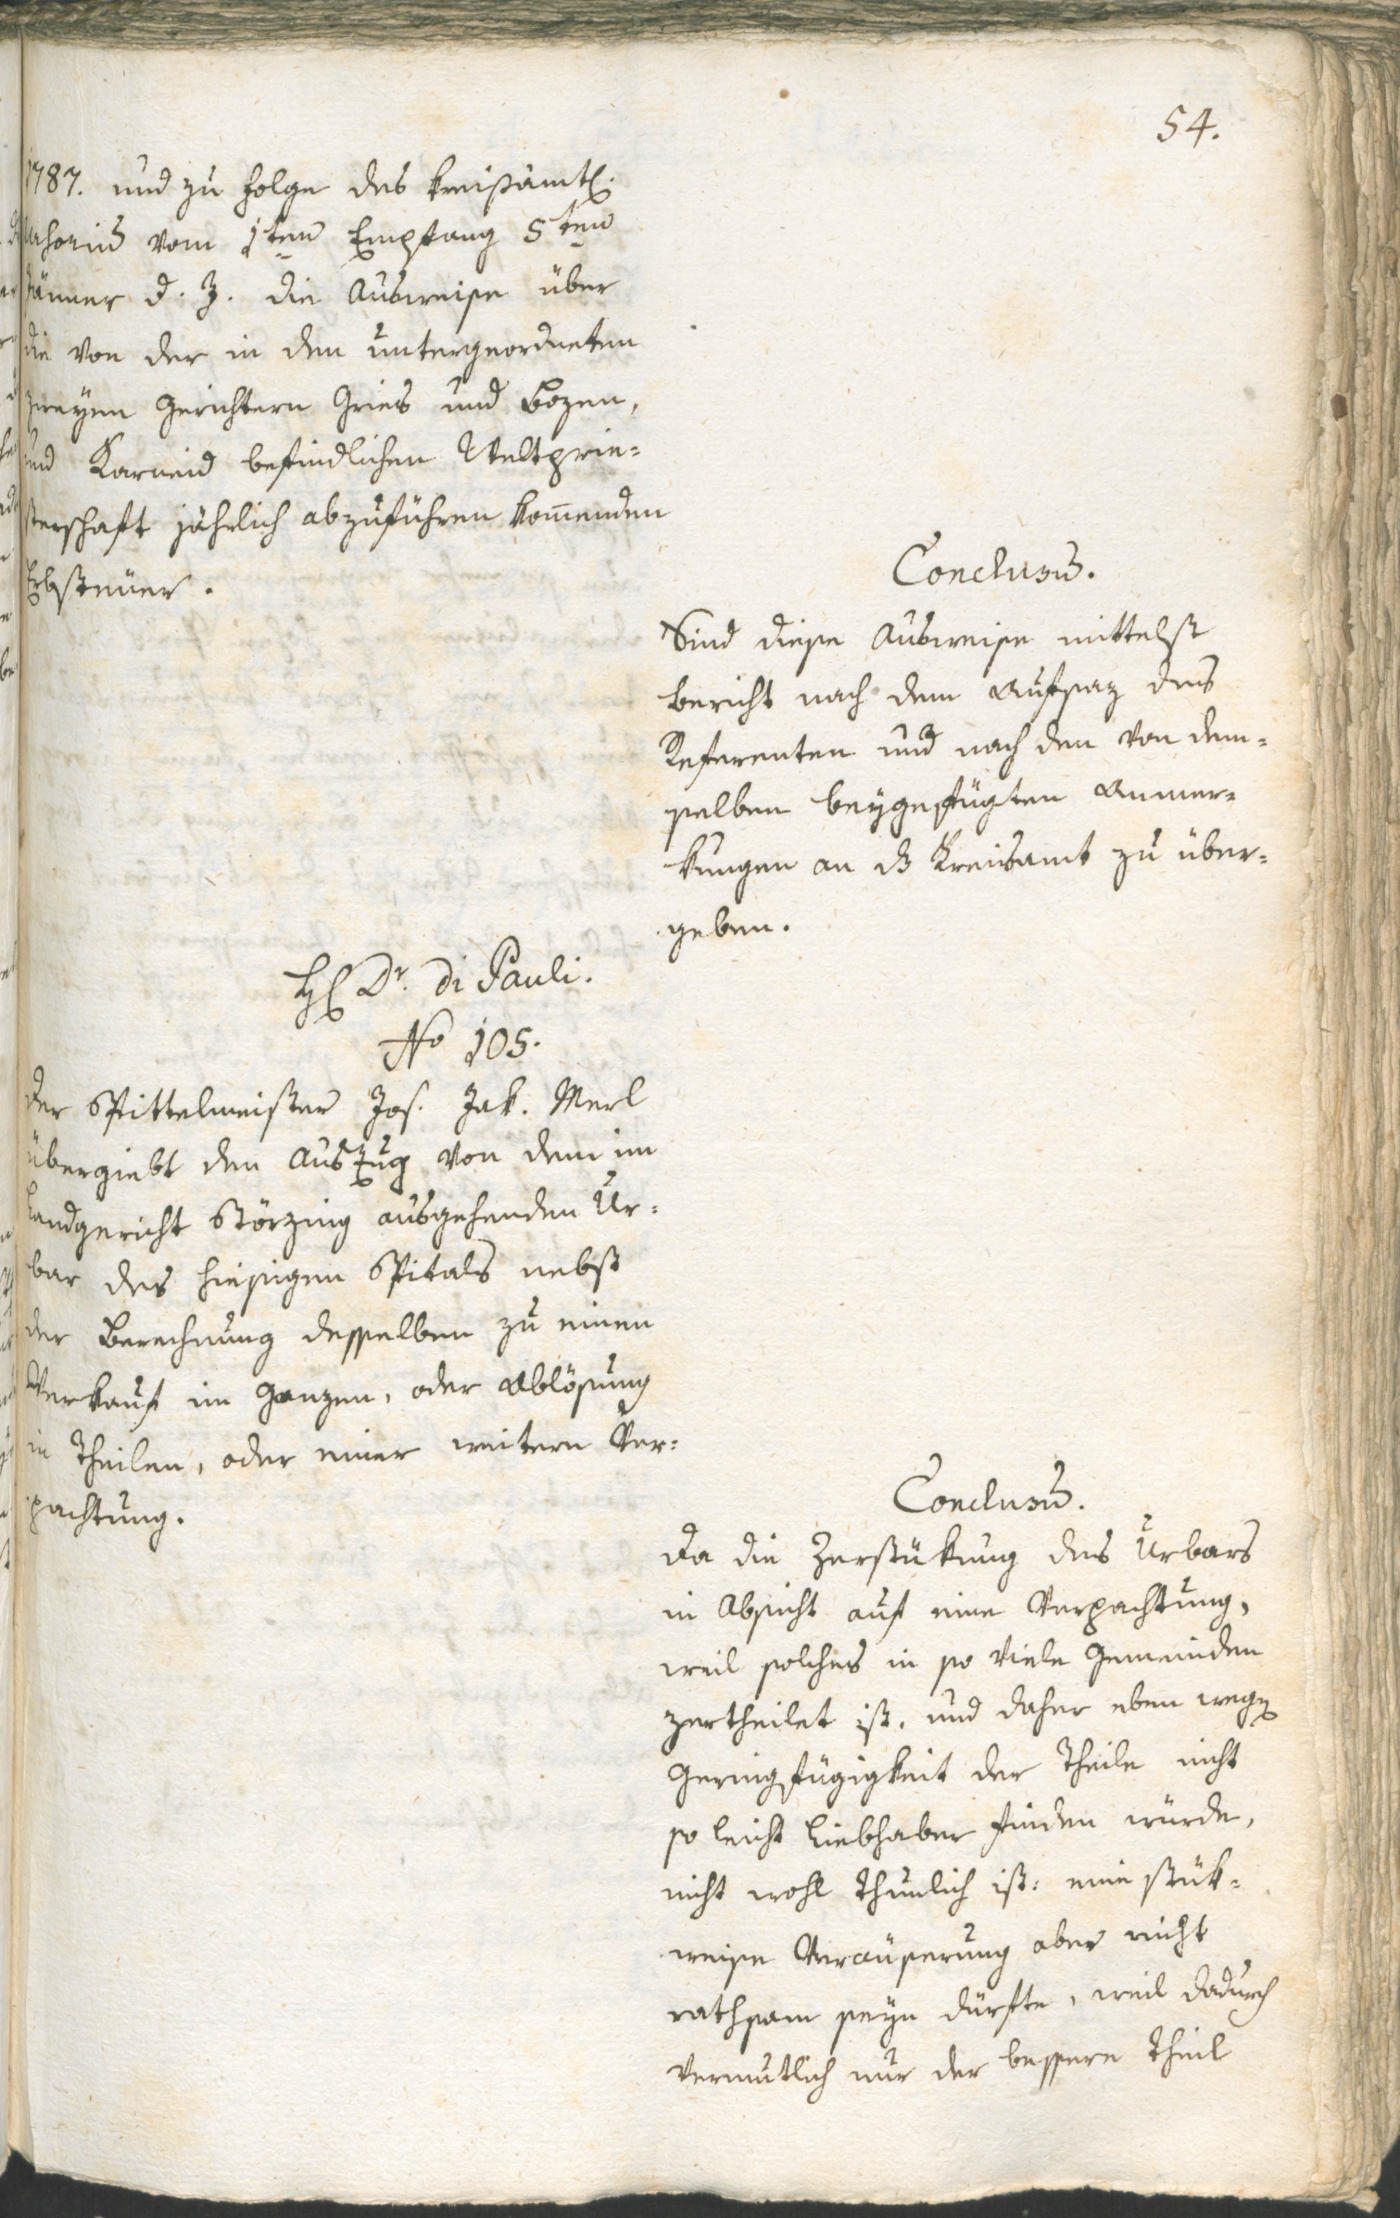 54.
1787. und zu Folge des kreisämtl.
vom 1ten Empfang 5ten
Jänner d. J. die Ausweise über
die von der in den untergeordneten
zweyen Gerichtern Gries und Bozen,
und Karneid befindlichen Weltprie=
sterschaft jährlich abzuführen kom̄enden
Erbsteüer.
Conclusū.
Sind diese Ausweise mittelst
Bericht nach dem Aufsaz des
Referenten und nach den von dem=
selben beygefügten Anmer=
kungen an ds Kreisamt zu über=
geben.
H. Dr. di Pauli.
No 105.
Der Spittelmeister Jos. Jak. Merl
übergiebt den Auszug von dem im
Landgericht Störzing ausgehenden Ur=
bar des hiesigen Spitals nebst
der Berechnung desselben zu einem
Verkauf im Ganzen, oder Ablösung
in Theilen, oder einer weitern Ver=
pachtung.
Conclusū.
Da die Zerstükung des Urbars
in Absicht auf eine Verpachtung,
weil solches in so viele Gemeinden
zertheilet ist, und daher eben weg
Geringfügigkeit der Theile nicht
so leicht Liebhaber finden würde,
nicht wohl thunlich ist: eine stük=
weise Veräuserung aber nicht
rathsam seyn dürfte, weil dadurch
vermutlich nur der bessere Theil